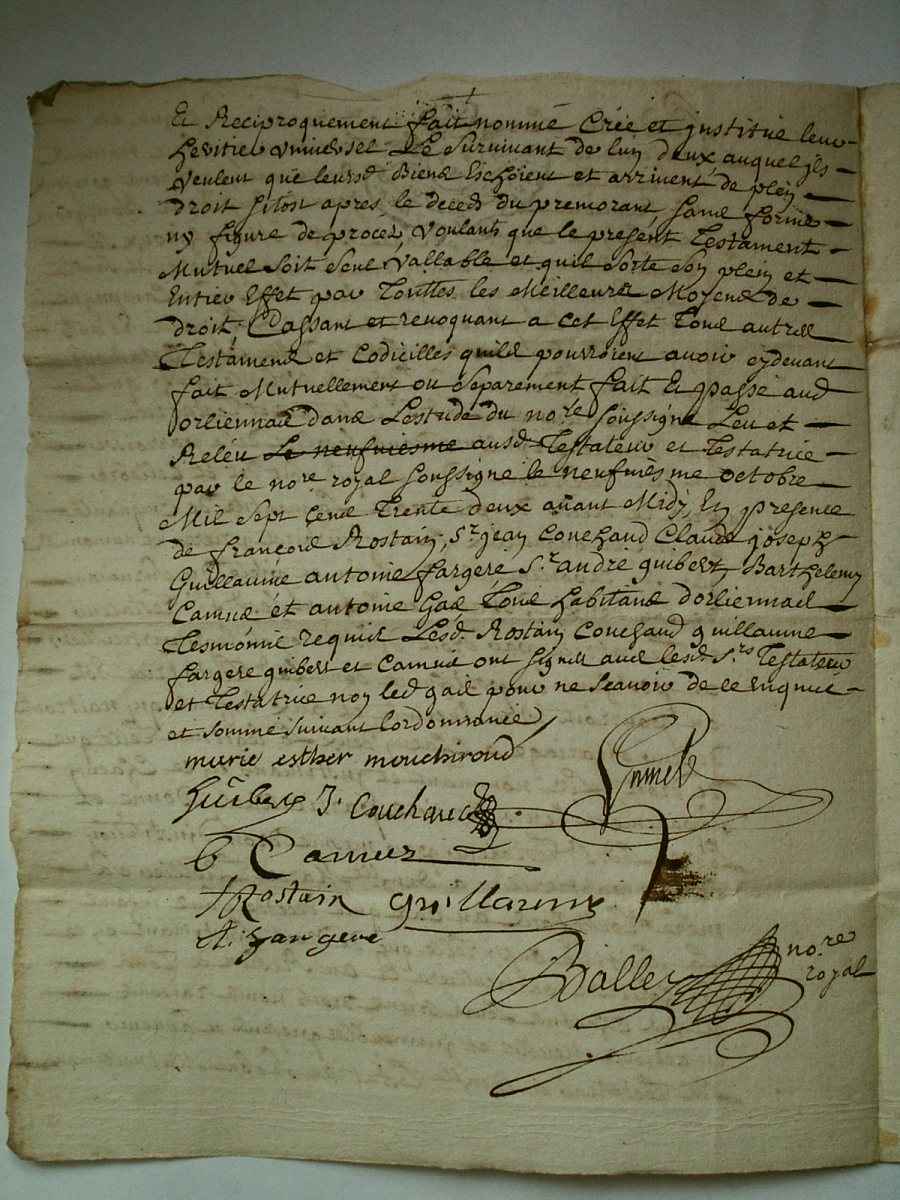 Et Reciproquement fait nommé Créé et jnstitué leur
heritier vniversel Le Survivant de luy deux auquel jls
Veulent que leursd. Biens Eschoient et arrivent de plein
droit sitost apres le deced du premorant sans forme
ny figure de procez, voulants que le present Testament
Mutuel soit seul vallable et quil sorte son plein et
Entier Effet par Touttes les Meilleures Moyens de
droit, Cassant et revoquant a cet Effet tous autres
Testamens et codicilles quils pourroient avoir cydevant
fait Mutuellement ou separement fait Et passé aud
orliennas dans Lestude du nore soussigné Leu et
Releu Le neufviesme ausd. Testateur et Testatrice
par le nore royal soussigné le neufviesme octobre
Mil sept cens trente deux avant Midy, En presence
de françois Rostain, Sr jean Couchaud Claude joseph
Guillaume antoine fargere Sr andré guibert, Barthelemy
Camus et antoine Gas tous habitans dorliennas
Tesmoins requis Lesd. Rostain Couchaud guillaume
fargere guibert et Camus ont signés avec lesd. Srs Testateur
et Testatrice non led gas pour ne scavoir de ce enquis
et sommé suivant lordonnance
marie esther mouchiroud
Guibert J. Couchaud
b Camus
f Rostain guillaume
A. fargere
Balley nore
royal